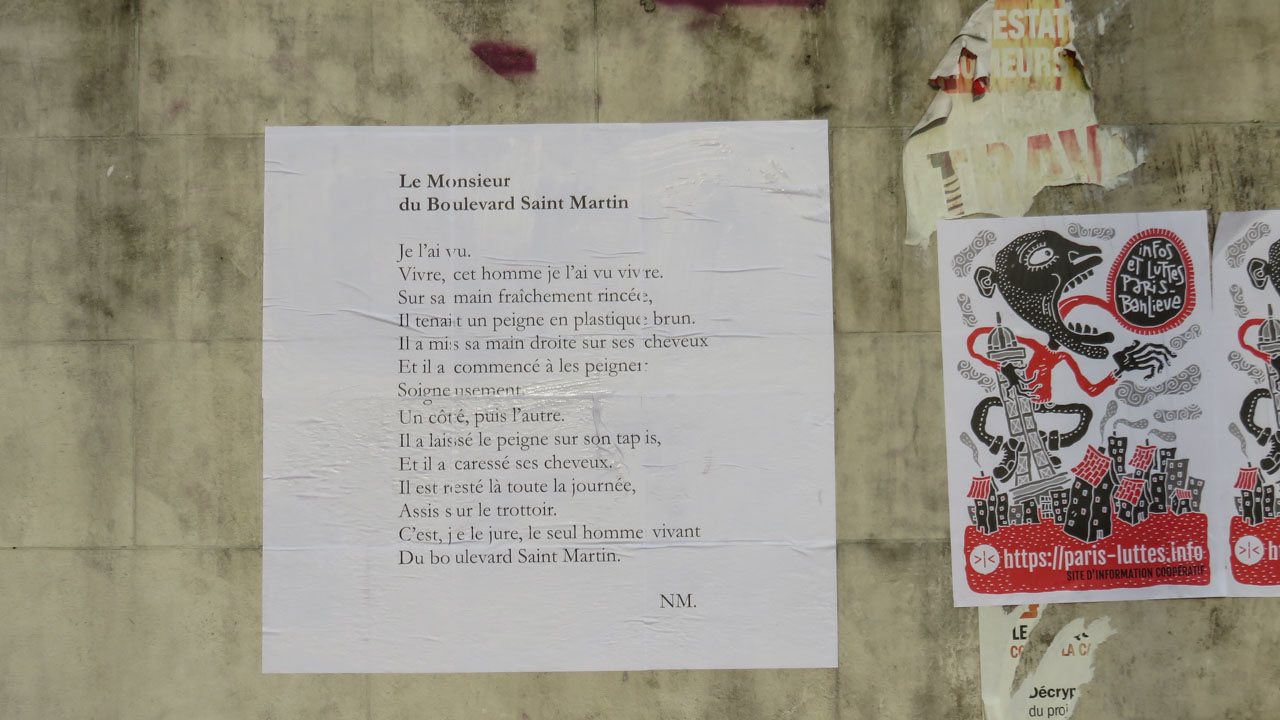 Le Monsieur
du Boulevard Saint Martin
Je l'ai vu.
Vivre, cet homme je l'ai vu vivre.
Sur sa main fraîchement rincée,
Il tenait un peigne en plastique brun.
Il a mis sa main droite sur ses cheveux
Et il a commencé à les peigner
Soigneusement
Un côté, puis l'autre.
Il a laissé le peigne sur son tapis,
Et il a caressé ses cheveux.
Il est resté là toute la journée,
Assis sur le trottoir.
C'est, je le jure, le seul homme vivant
Du boulevard Saint Martin.
NM.
ESTAT
MEURS
TRAV
infos
et luttes
Paris-
Banlieue
>|< https://paris-luttes.info
SITE D'INFORMATION COOPÉRATIF
>|< h
LE
CO LA CA
Décryp
du proj